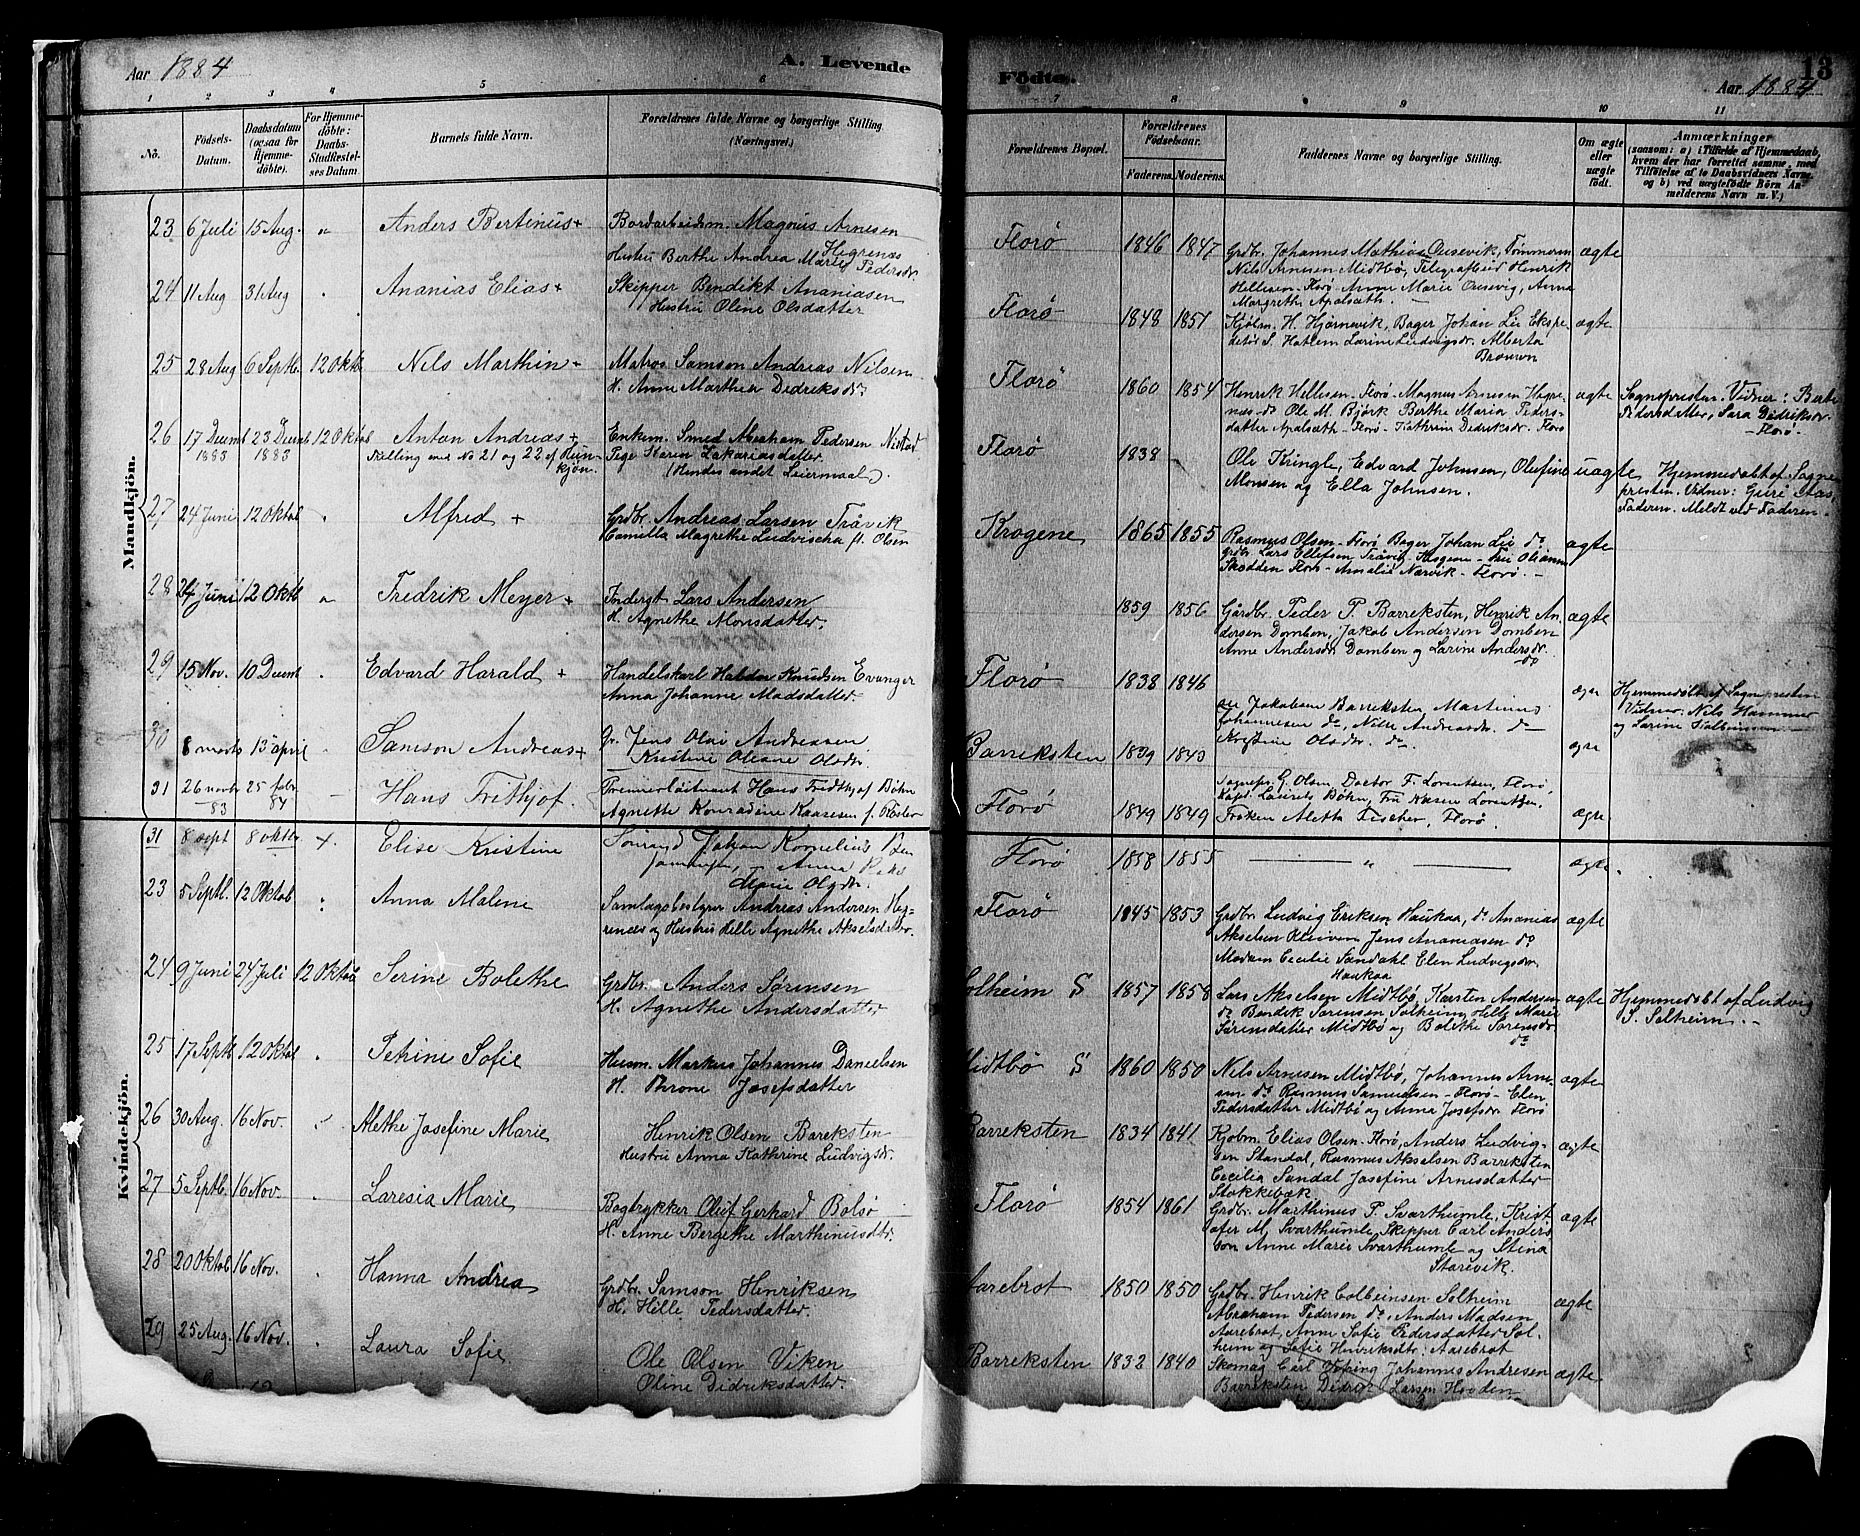 Aar 1884
A. Levende
Fødte.
13
Aar 1884
1 2 3 4 5 6 7 8 9 10 11
No.
Fødsels-
Datum.
Daabsdatum
(ogsaa for
Hjemme-
døbte).
For Hjemme-
døbte:
Daabs-
Stadfæstel-
ses Datum.
Barnets fulde Navn.
Forældrenes fulde Navne og borgerlige Stilling
(Næringsvei.)
Forældrenes Bopæl.
Forældrenes
Fødselsaar.
Faderens. Moderens.
Faddernes Navne og borgerlige Stilling.
Om ægte
eller
uægte
født.
Anmærkninger
(saasom: a) i Tilfælde af Hjemmedaab,
hvem der har forrettet samme, med
Tilføielse af to Daabsvidners Navne
og b) ved uægtefødte Børn An-
melderens Navn m. V.)
Mandkjön.
23 6 Juli 15 Aug. " Anders Bertinus + Bordarbeidsm. Magnus Arnesen
Hegrenæs
Hustru Berthe Andrea Marie Pedersdr.
Florø 1846 1847 Grdbr. Johannes Mathias Ousevik, Tømmerm.
Nils Arnesen Midtbø, Telegrafbud Henrik
Hellisen Florø Anne Marie Ousevig, Anna
Margrethe Apalsæth. —
ægte
24 11 Aug 31 Aug " Ananias Elias + Skipper Bendikt Ananiasen
Hustru Oline Olsdatter
Florø 1848 1851 Kjøbm. H. Hjørnevik, Bager Johan Lie Ekspe-
ditør S. Hatlem Larine Ludvigsdr. Alberta
ægte
25 28 Aug 6 Septb. 12 Oktb Nils Marthin + Matros Samson Andreas Nilsen
H. Anne Marthea Didriksdr.
Florø 1860 1854 Henrik Hellisen - Florø - Magnus Arnesen Hegre-
næs do Ole M. Bjørk Berthe Maria Peders-
datter Apalsæth - Florø - Kathrine Didriksdr. Florø
ægte Sognepresten. Vidner: Berte
Pedersdatter, Sara Didriksdr.
- Florø -
26 17 Decemb 23 Decemb 12 Oktob Anton Andreas + Enkem. Smed Abraham Pedersen Nistad
1883 1883 Telling end No 21 og 22 af Kvin-
kjøn. Pige Karen Zakariasdatter.
(Hendes andet Leiermaal).
Florø 1838 Ole Kringle, Edvard Johnsen, Olefine
Monsen og Ella Johnsen.
uægte Hjemmedøbt af Sogne-
presten. Vidner: Guri Aas,
Faderen. Meldt ved Faderen.
27 24 Juni 12 Oktob " Alfred + Grdbr. Andreas Larsen Tråvik
Camilla Magrethe Ludvischa f. Olsen
Krogene 1865 1855 Rasmus Olsen - Florø Bager Johan Lie do
Grdbr Lars Ellefsen Tråvig - Krogene - Fru Olianne
Skodden Florø - Amalie Nærvik - Florø. —
ægte
28 24 Juni 12 Oktb " Fredrik Meyer + Inderst Lars Andersen
H. Agnethe Monsdatter.
1859 1856 Gårdbr. Peder P. Barreksten, Henrik An-
dersen Domben, Jakob Andersen Domben
Anne Andersdr. Domben og Larine Andersdr.
do
ægte
29 15 Nov. 10 Decemb " Edvard Harald + Handelskarl Haldor Knudsen Evanger
Anna Johanne Madsdatter.
Florø 1838 1846
ægte Hjemmedøbt af Sognepresten
Vidner: Nils Hammer
og Larine
30 8 marts 13 april " Samson Andreas + Gr. Jens Olai Andreasen
Kristine Oleane Olsdr.
Barreksten 1839 1843 Jakobsen Barreksten, Martinus
Johannesen do, Nille Andreasdr. do
Kristine Olsdr. do
ægte
31 26 novbr 25 febr
83 84 — Hans Frithjof. Premierløitnant Hans Fredthjof Bøhn
Agnette Konradine Kaaresen f. Røsler
Florø 1849 1849 Sognepr. G. Olsen, Doctor F. Lorentzen, Florø,
Kapt. Laurits Bøhn, Fru Lorentzen,
Frøken Aletta Fischer, Florø.
ægte
31 8 sept 8 oktbr +. Elise Kristine Johan Kornelius
Anna
Marie Olsdr.
Florø 1858 1855 " ægte
Kvindekjön.
23 5 Septb. 12 Oktob " Anna Malene Samlagsbestyrer Andreas Andersen Heg-
renæs og Hustru Hille Agnethe Akselsdatter.
Florø 1845 1853 Grdbr. Ludvig Eriksen Haukaa, do Ananias
Akselsen Jens Ananiasen do
Madam Cecilie Sandahl Elen Ludvigsdr.
Haukaa
ægte
24 9 Juni 24 Juli 12 Oktob Serine Bolethe Grdbr. Anders Sørensen
H. Agnethe Andersdatter
Solheim S 1857 1858 Lars Akselsen Midtbø, Karsten Andersen
do Bendik Sørensen Solheim, Hille Marie
Sørensdatter Midtbø og Bolethe Sørensdr
do
ægte Hjemmedøbt af Ludvig
S. Solheim. —
25 17 Septb 12 Oktob " Petrine Sofie Husm. Markus Johannes Danielsen
H. Throne Josefsdatter
Midtbø S 1860 1850 Nils Arnesen Midtbø, Johannes Arne-
sen do Rasmus Samuelsen - Florø - Elen
Pedersdatter Midtbø og Anna Josefsdr Florø
ægte
26 30 Aug. 16 Nov. " Alethe Josefine Marie Henrik Olsen Bareksten
Hustru Anna Kathrine Ludvigsdr.
Barreksten 1834 1841 Kjøbm. Elias Olsen - Florø, Anders Ludvig-
sen Standal, Rasmus Akselsen Barreksten
Cecilia Sandal Josefine Arnesdatter
Stokkebæk
ægte
27 5 Septb. 16 Nov. " Laresia Marie Bogtrykker Oluf Gerhard Bolsø
H. Anne Bergethe Marthinusdtr.
Florø 1854 1861 Grdbr. Marthinus P. Svarthumle, Krist-
ofer M. Svarthumle, Skipper Carl Anders-
son Anne Marie Svarthumle og Stena
Starevik.
ægte
28 20 Oktob 16 Nov. " Hanna Andrea Grdbr. Samson Henriksen
H. Hille Pedersdatter.
Aarebrot 1850 1850 Grdbr. Henrik Colbeinsen Solheim
Abraham Pedersen do, Anders Madsen
Aarebrot, Anne Sofie Pedersdatter Sol-
heim og Sofie Henriksdtr. Aarebrot
ægte
29 25 Aug. 16 Nov. " Laura Sofie Ole Olsen Viken
Oline Didriksdatter.
Barreksten 1832 1840 Skomag. Carl Viking Johannes Andresen
Barreksten Didrik Larsen Hovden
ægte
S